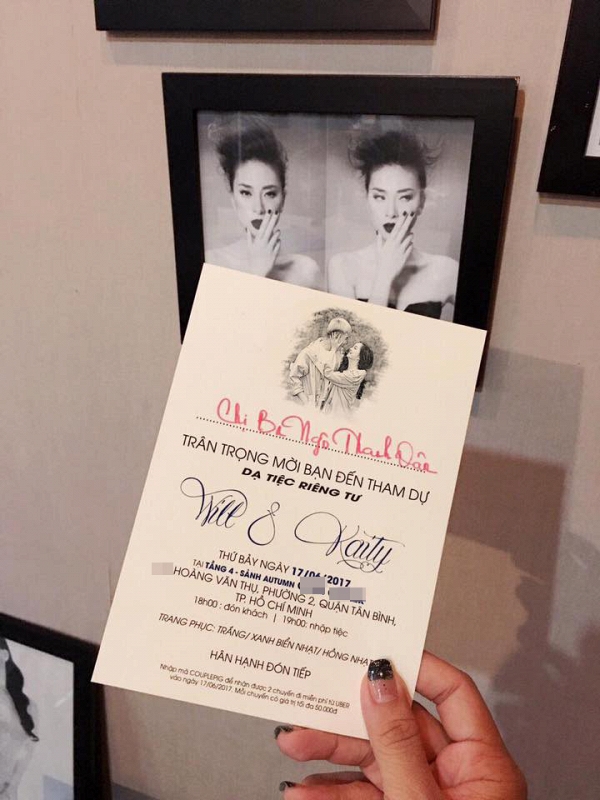 Chị Ba Ngô Thanh Vân
TRÂN TRỌNG MỜI BẠN ĐẾN THAM DỰ
DẠ TIỆC RIÊNG TƯ
Will & Kaity
THỨ BẢY NGÀY 17/06/2017
TẠI TẦNG 4 - SẢNH AUTUMN
HOÀNG VĂN THỤ, PHƯỜNG 2, QUẬN TÂN BÌNH,
TP. HỒ CHÍ MINH
18h00 : đón khách | 19h00: nhập tiệc
TRANG PHỤC: TRẮNG/ XANH BIỂN NHẠT/ HỒNG
HÂN HẠNH ĐÓN TIẾP
Nhập mã COUPLEPIG để nhận được 2 chuyến đi miễn phí từ UBER
vào ngày 17/06/2017. Mỗi chuyến có giá trị tối đa 50.000đ